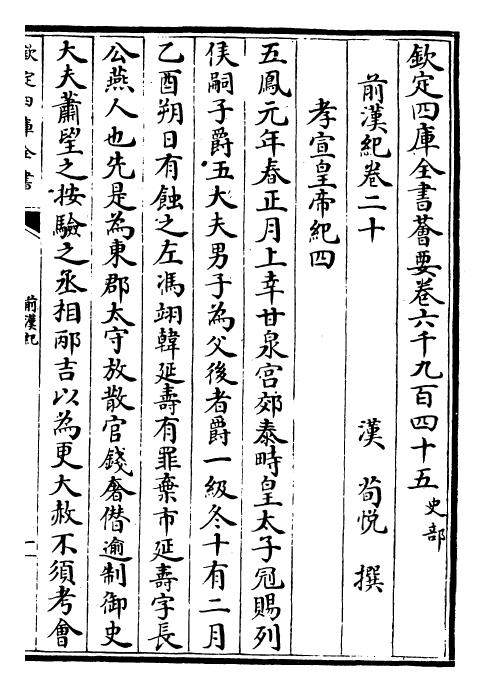 欽定四庫全書薈要卷六千九百四十五 史部
前漢紀卷二十 漢 荀悅 撰
孝宣皇帝紀四
五鳳元年春正月上幸甘泉宫郊泰畤皇太子冠賜列
侯嗣子爵五大夫男子為父後者爵一級冬十有二月
乙酉朔日有蝕之左馮翊韓延壽有罪棄市延壽字長
公燕人也先是為東郡太守放散官錢奢僭逾制御史
大夫蕭望之按驗之丞相邴吉以為更大赦不須考會
欽定四庫全書
前漢紀
一